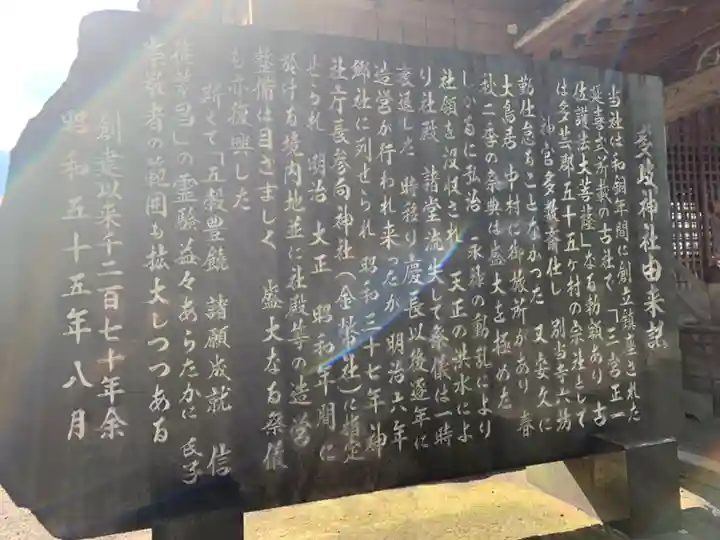 多岐神社由来記
当社は和銅年間に創立鎮座された
延喜式所載の古社で「三宮正一
位護法大菩薩」なる勅額あり 古
は多芸郡五十五ヶ村の宗社として
神官多数斎仕し 別当寺六坊
勤仕怠ることなかった 又安久に
大鳥居 中村に御旅所があり 春
秋二季の祭典は盛大を極めた
しかるに弘治 永禄の動乱により
社領を没収され 天正の洪水によ
り社殿 諸堂流失して祭儀は一時
衰退した 時移り慶長以後逐年に
造営が行われ来ったが明治六年
郷社に列せられ 昭和三十七年神
社庁長参向神社(金幣社)に指定
せられ 明治 大正 昭和年間に
於ける境内地並に社殿等の造営
整備は目ざましく 盛大なる祭儀
も亦復興した
斯くて「五穀豊饒 諸願成就 信
者の霊験益々あらたかに 氏子
崇敬者の範囲も拡大しつつある
創建以来千二百七十年余
昭和五十五年八月